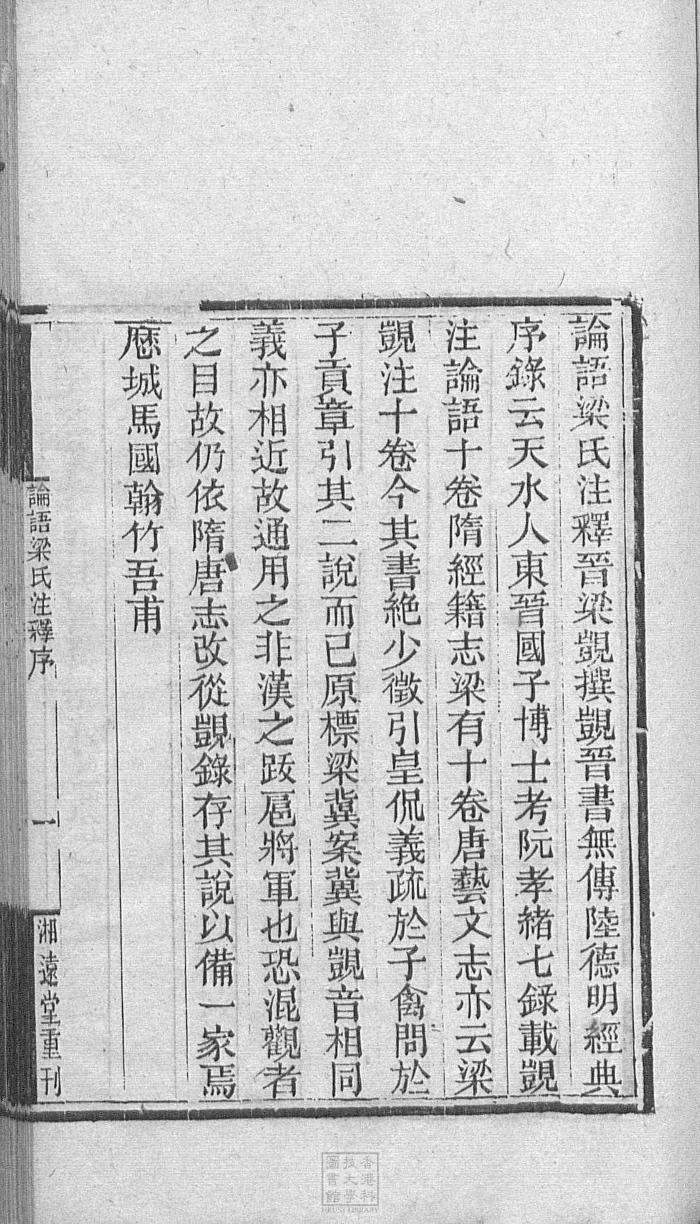 論語梁氏注釋晉梁覬撰覬晉書無傳陸德明經典
序錄云天水人東晉國子博士考阮孝緒七錄載覬
注論語十卷隋經籍志梁有十卷唐藝文志亦云梁
覬注十卷今其書絶少徵引皇侃義疏於子禽問於
子貢章引其二說而已原標梁冀案冀與覬音相同
義亦相近故通用之非漢之跋扈將軍也恐混觀者
之目故仍依隋唐志改從覬錄存其說以備一家焉
厯城馬國翰竹吾甫
論語梁氏注釋序
一
湘遠堂重刊
香港科
技大學
圖書館
HKUST LIBRARY